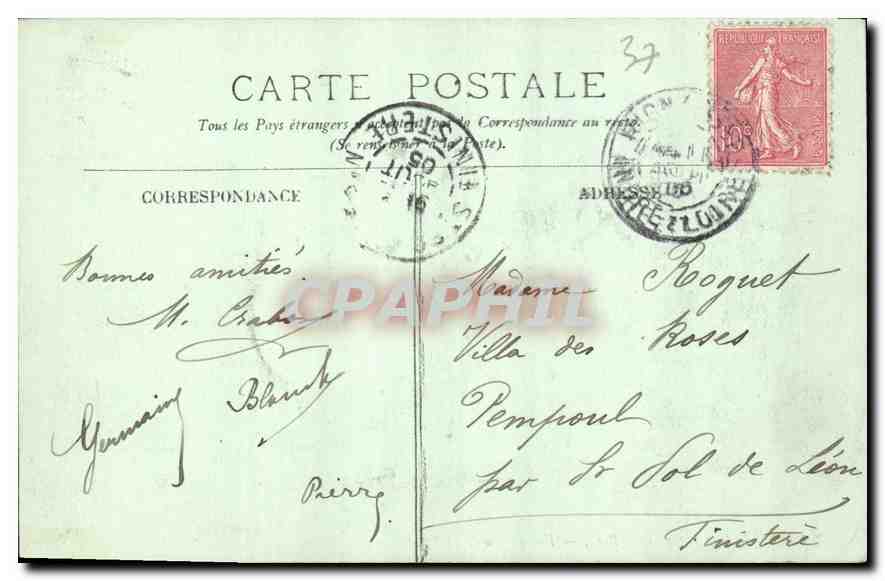 37
CARTE POSTALE
Tous les Pays étrangers n'acceptent pas la Correspondance au recto.
(Se renseigner à la Poste).
RÉPUBLIQUE FRANÇAISE
10c
FINISTERE
AOUT
05
INDRE-ET-LOIRE
CORRESPONDANCE
ADRESSE
Bonnes amitiés
M.
Germaine
Blanche
Pierre
Madame Roguet
Villa des Roses
Pempoul
par St Pol de Léon
Finistère
CPAPHIL